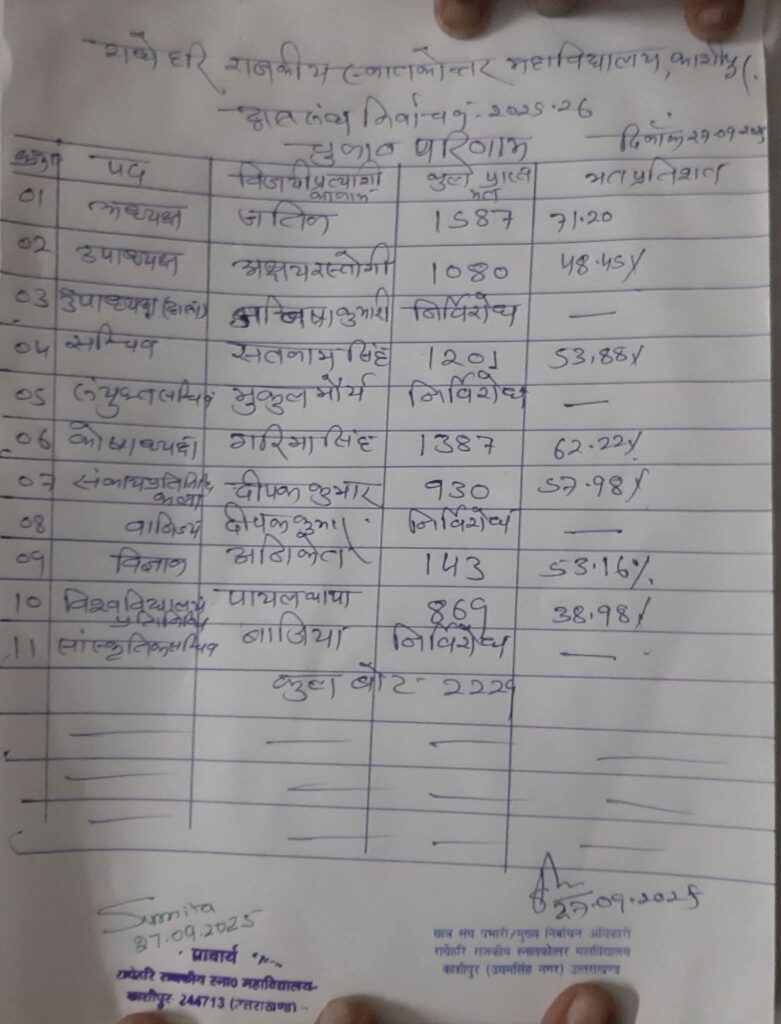 राधे हरि राजकीय स्नातकोत्तर महाविद्यालय, काशीपुर
छात्र संघ निर्वाचन - 2025-26
चुनाव परिणाम दिनाँक 27.09.2025
क्रमांक पद विजयी प्रत्याशी का नाम कुल प्राप्त मत मत प्रतिशत
01 अध्यक्ष जतिन 1587 71.20
02 उपाध्यक्ष अक्षय रस्तोगी 1080 48.45%
03 उपाध्यक्ष (छात्रा) कुमारी निर्विरोध —
04 सचिव सतनाम सिंह 1201 53.88%
05 संयुक्त सचिव मुकुल मौर्य निर्विरोध —
06 कोषाध्यक्ष गरिमा सिंह 1387 62.22%
07 संकाय प्रतिनिधि कला दीपक कुमार 930 57.98%
08 वाणिज्य दीपक कुमार निर्विरोध —
09 विज्ञान अनिकेत 143 53.16%
10 विश्वविद्यालय प्रतिनिधि पायल 869 38.98%
11 सांस्कृतिक सचिव निर्विरोध —
कुल वोट - 2229
Sumita
27.09.2025
प्राचार्य
राधेहरि राजकीय स्ना० महाविद्यालय
काशीपुर 244713 (उत्तराखण्ड)
27.09.2025
छात्र संघ प्रभारी/मुख्य निर्वाचन अधिकारी
राधेहरि राजकीय स्नातकोत्तर महाविद्यालय
काशीपुर (उधमसिंह नगर) उत्तराखण्ड